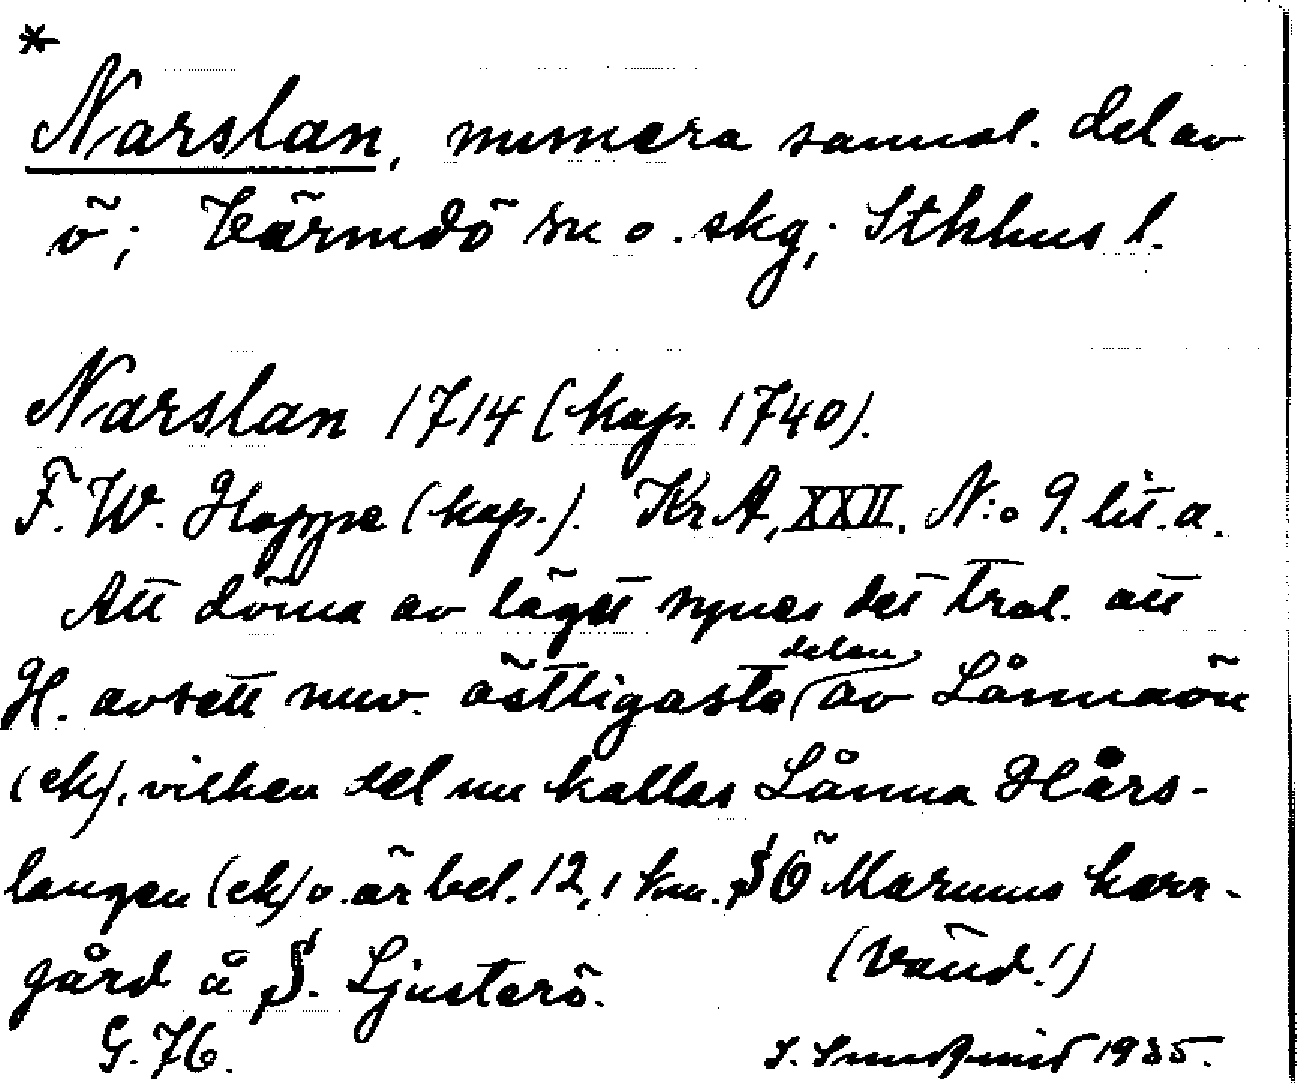 *
Narslan, numera sannol. del av
ö; Värmdö sn o. skg; Sthlms l.
Narslan 1714 (kop. 1740).
F. W. Hoppe (kop.). KrA, XXII. N:o 9. lit. a.
Att döma av läget synes det trol. att
H. avsett nuv. östligaste delen av Lånnaön
(ek), vilken del nu kallas Lånna Hårs-
langen (ek) o. är bel. 12,1 km. SÖ Marums herr-
gård å S. Ljusterö. (Vänd!)
G. 76. 1935.